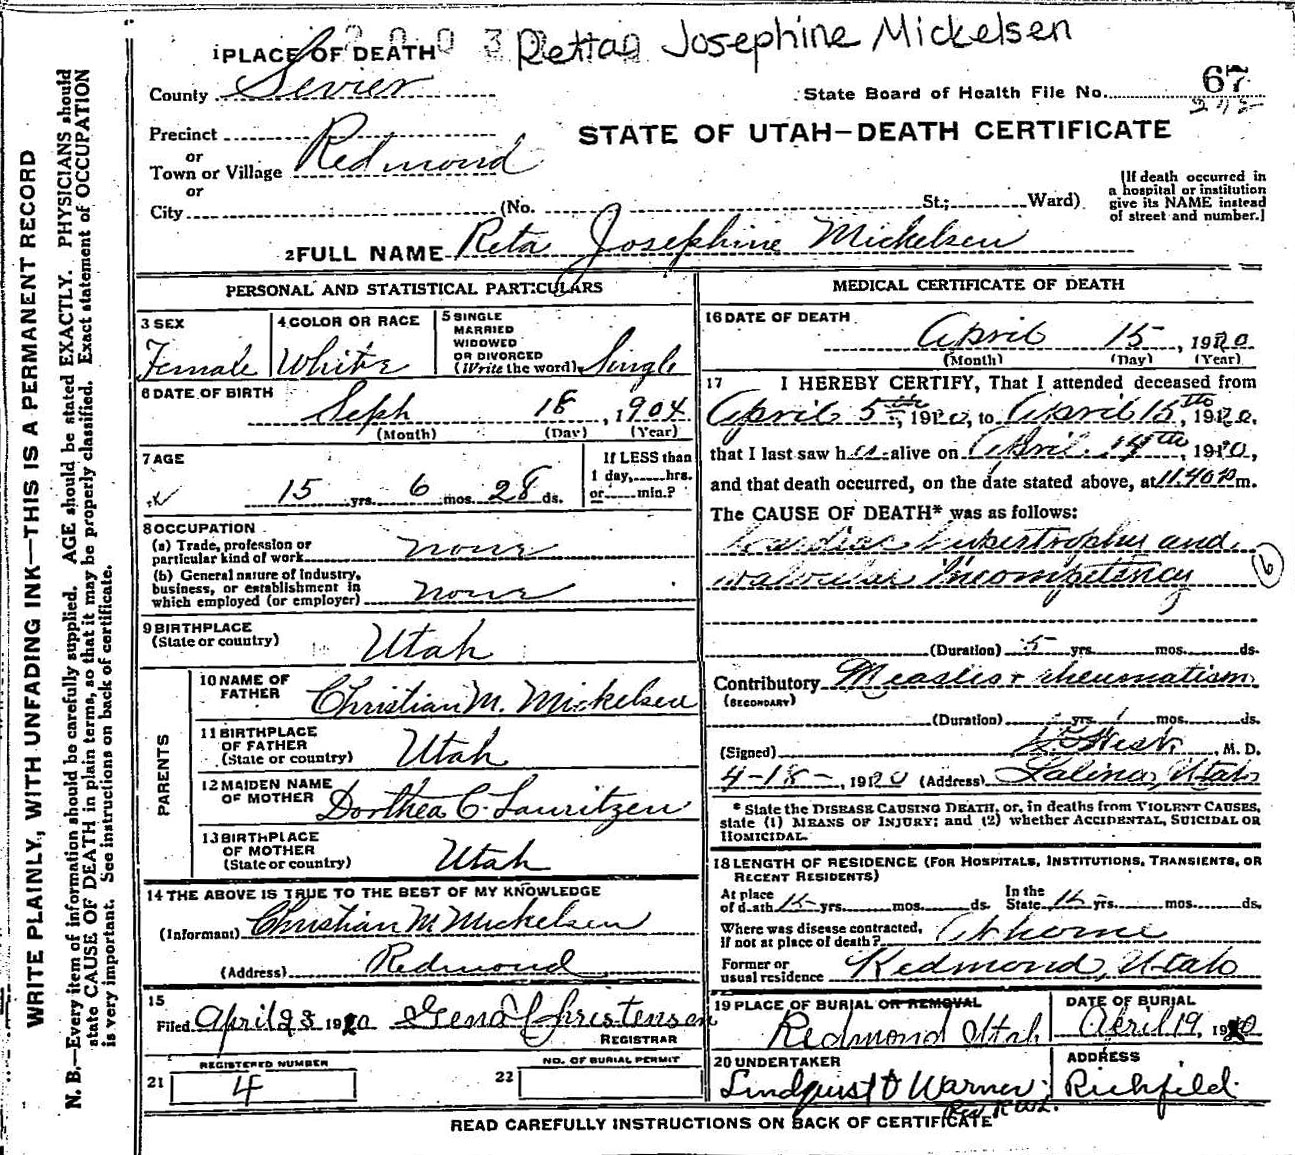 Rettao Josephine Mickelsen
1 PLACE OF DEATH
County Sevier
State Board of Health File No. 67
Precinct
or
Town or Village Redmond
or
City (No. St.; Ward)
STATE OF UTAH—DEATH CERTIFICATE
[If death occurred in
a hospital or institution
give its NAME instead
of street and number.]
2 FULL NAME Reta Josephine Mickelsen
PERSONAL AND STATISTICAL PARTICULARS
3 SEX
Female
4 COLOR OR RACE
White
5 SINGLE
MARRIED
WIDOWED
OR DIVORCED
(Write the word) Single
6 DATE OF BIRTH
Seph 18, 1904
(Month) (Day) (Year)
7 AGE
15 yrs. 6 mos. 28 ds.
If LESS than
1 day, hrs.
or min.?
8 OCCUPATION
(a) Trade, profession or
particular kind of work none
(b) General nature of Industry,
business, or establishment in
which employed (or employer) none
9 BIRTHPLACE
(State or country) Utah
PARENTS
10 NAME OF
FATHER Christian M. Mickelsen
11 BIRTHPLACE
OF FATHER
(State or country) Utah
12 MAIDEN NAME
OF MOTHER Dorthea C. Lauritzen
13 BIRTHPLACE
OF MOTHER
(State or country) Utah
14 THE ABOVE IS TRUE TO THE BEST OF MY KNOWLEDGE
(Informant) Christian M Mickelsen
(Address) Redmond
15
Filed April 23 1920 Gena Christensen
REGISTRAR
REGISTERED NUMBER
21 4
NO. OF BURIAL PERMIT
22
MEDICAL CERTIFICATE OF DEATH
16 DATE OF DEATH
April 15, 1920
(Month) (Day) (Year)
17 I HEREBY CERTIFY, That I attended deceased from
April 5th, 1920, to April 15th, 1920,
that I last saw her alive on April 14th, 1920,
and that death occurred, on the date stated above, at 11.40 P m.
The CAUSE OF DEATH* was as follows:
Cardiac hypertrophy and
valvular incompetency
6
(Duration) 5 yrs. mos. ds.
Contributory Measles + rheumatism
(SECONDARY)
(Duration) yrs. 1 mos. ds.
(Signed) West, M. D.
4-18-, 1920 (Address) Salina, Utah
* State the DISEASE CAUSING DEATH, or, in deaths from VIOLENT CAUSES,
state (1) MEANS OF INJURY; and (2) whether ACCIDENTAL, SUICIDAL OR
HOMICIDAL.
18 LENGTH OF RESIDENCE (FOR HOSPITALS, INSTITUTIONS, TRANSIENTS, OR
RECENT RESIDENTS)
At place
of death 15 yrs. mos. ds.
In the
State 15 yrs. mos. ds.
Where was disease contracted,
if not at place of death? At home
Former or
usual residence Redmond, Utah
19 PLACE OF BURIAL OR REMOVAL
Redmond Utah
DATE OF BURIAL
April 19, 1920
20 UNDERTAKER
Lindquist & Warner
ADDRESS
Richfield
READ CAREFULLY INSTRUCTIONS ON BACK OF CERTIFICATE
WRITE PLAINLY, WITH UNFADING INK—THIS IS A PERMANENT RECORD
N. B.—Every item of information should be carefully supplied. AGE should be stated EXACTLY. PHYSICIANS should
state CAUSE OF DEATH in plain terms, so that it may be properly classified. Exact statement of OCCUPATION
is very important. See instructions on back of certificate.